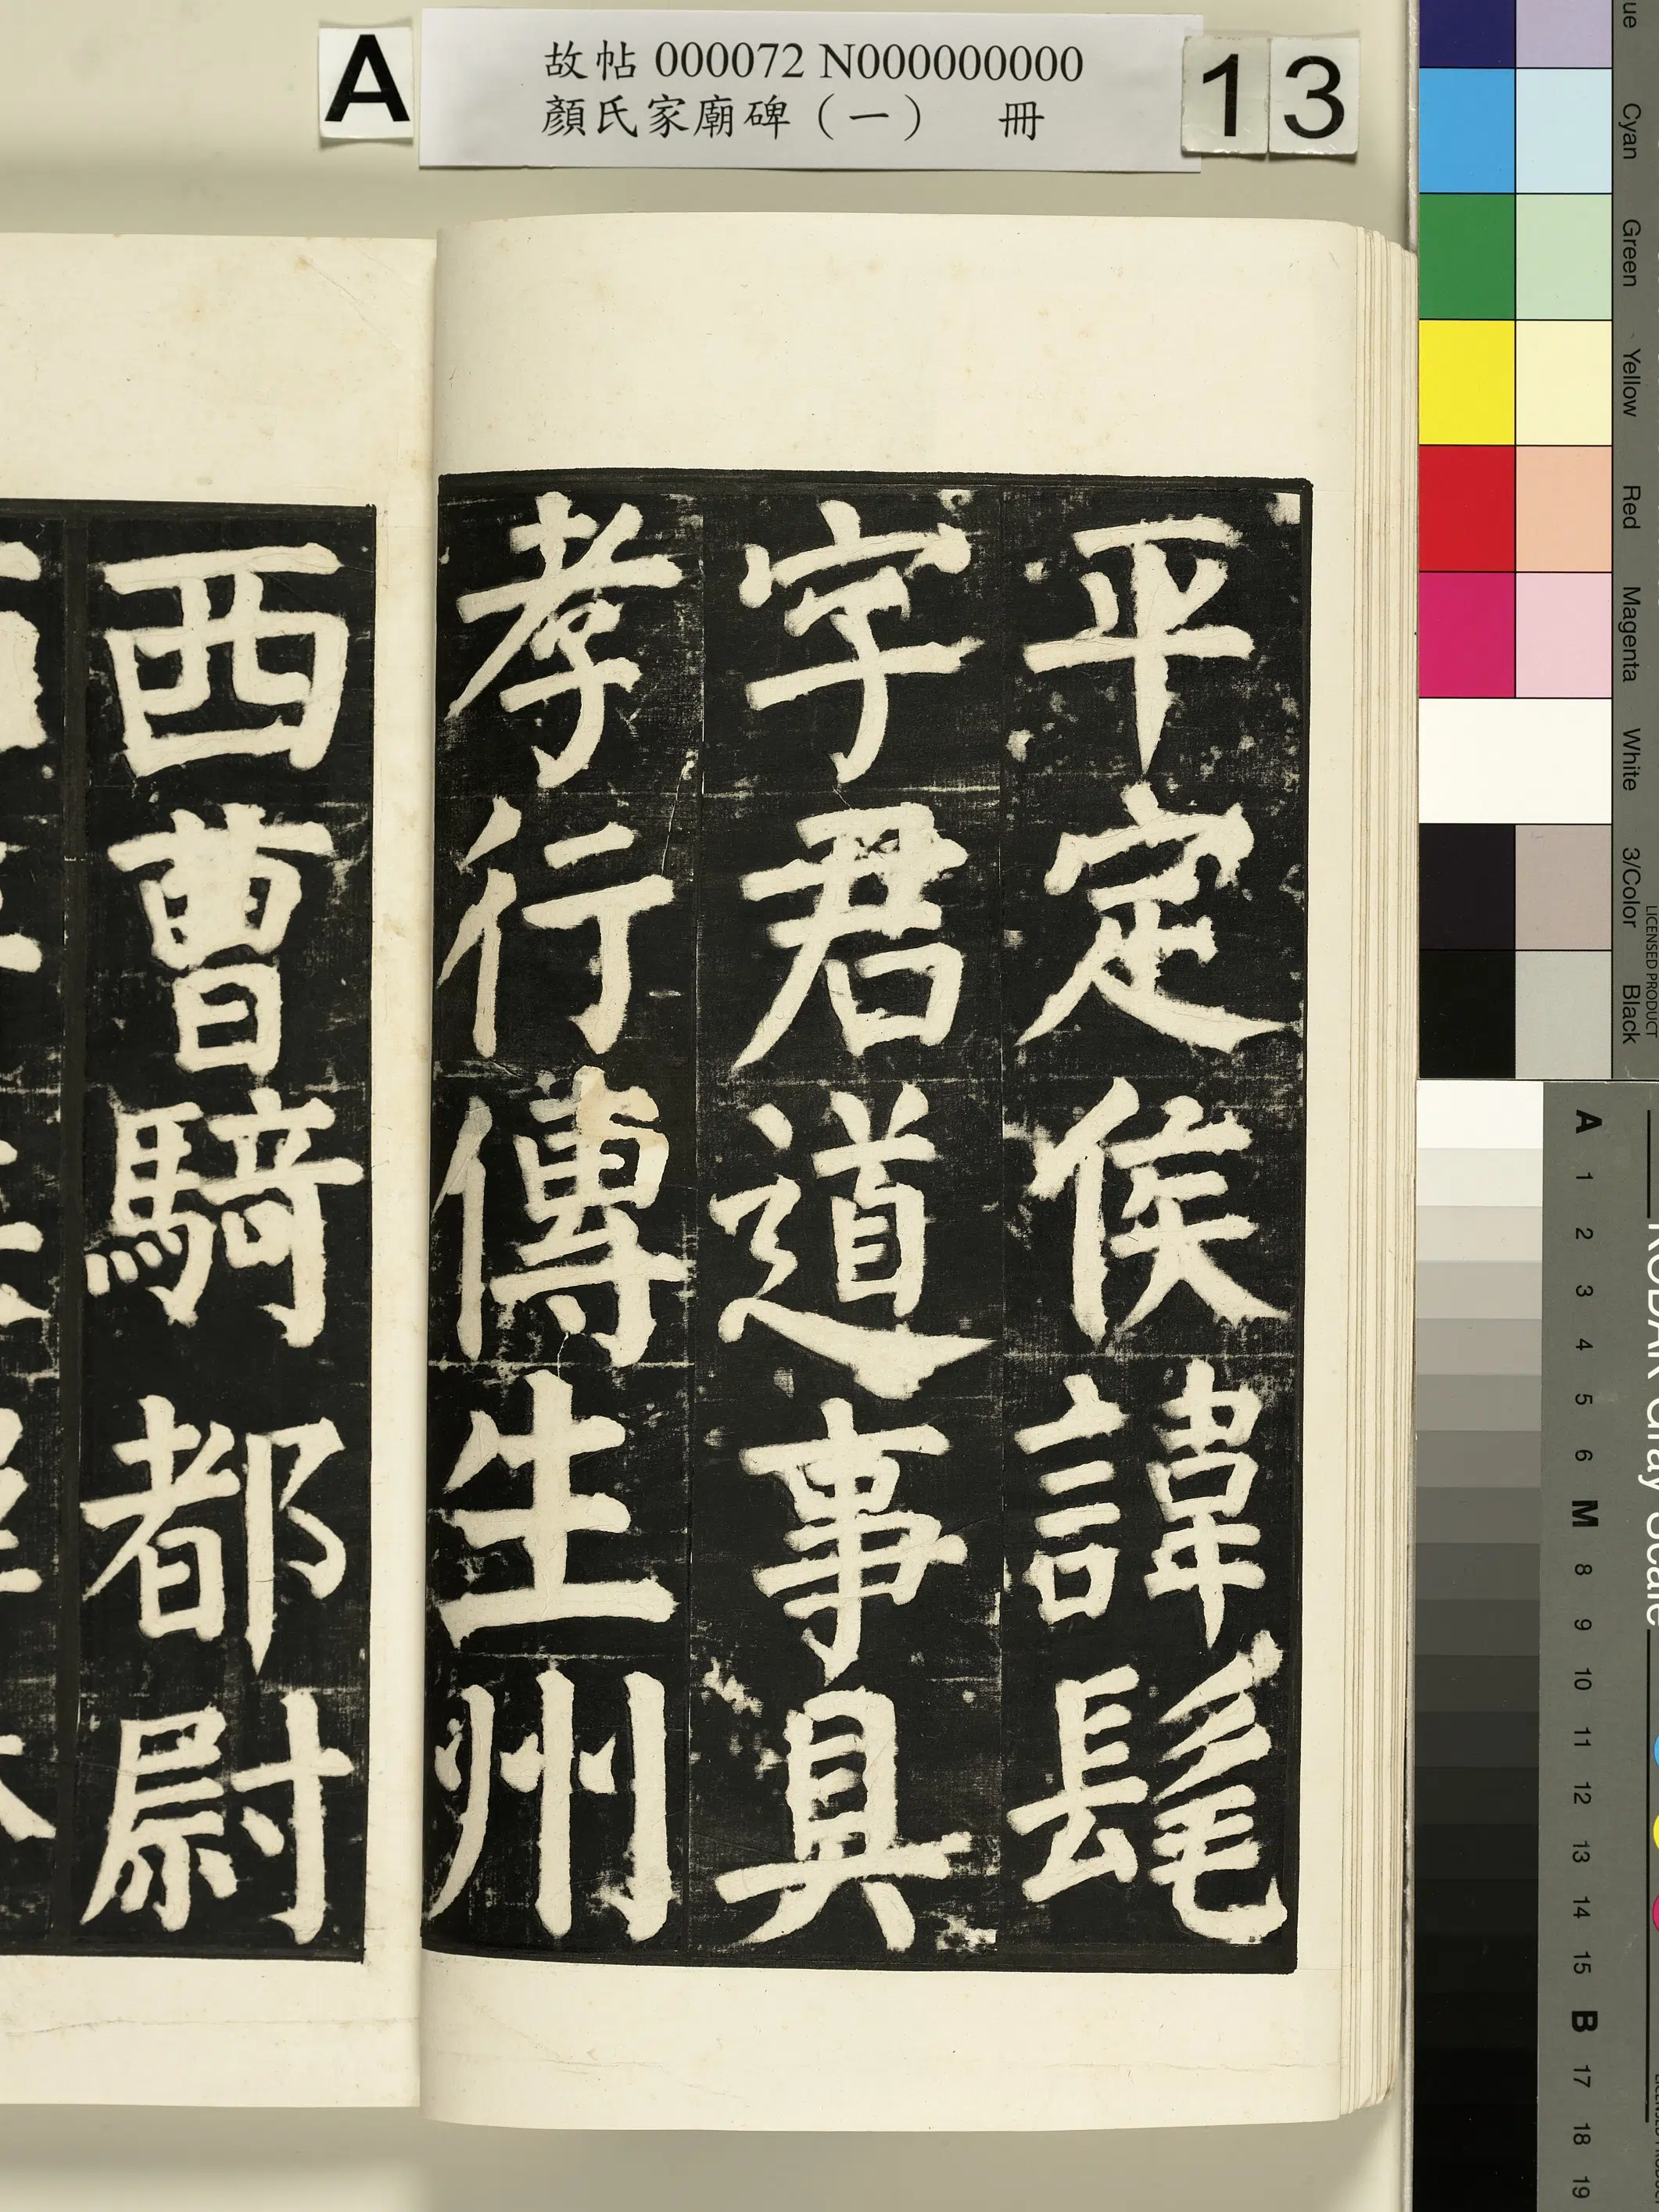 A
故帖 000072 N000000000
顏氏家廟碑（一） 冊
13
平定侯諱髦
字君道事具
孝行傳生州
西曹騎都尉
Cyan
Green
Yellow
Red
Magenta
White
3/Color
Black
LICENSED PRODUCT
KODAK Gray Scale
A
1
2
3
4
5
6
M
8
9
10
11
12
13
14
15
B
17
18
19